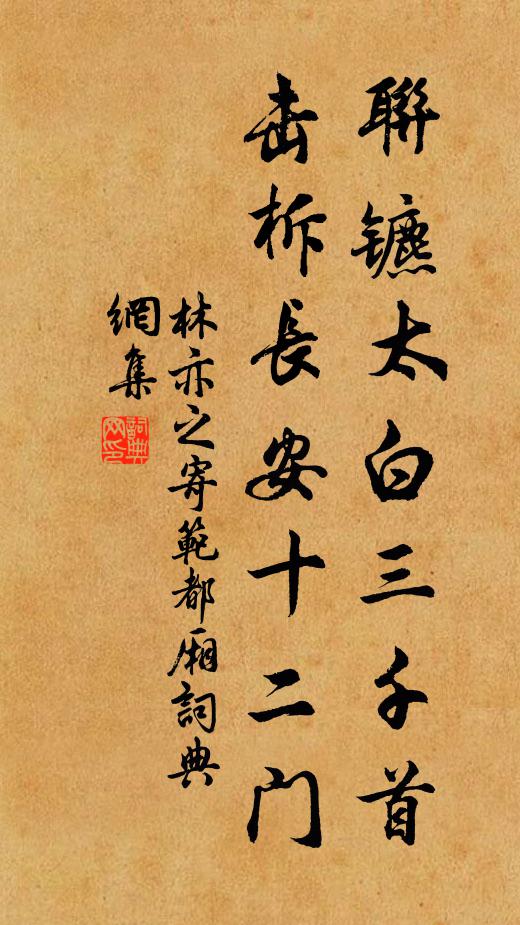 聯镳太白三千首
击柝長安十二门
林亦之寄範都厢詞典
網集
詞典网印